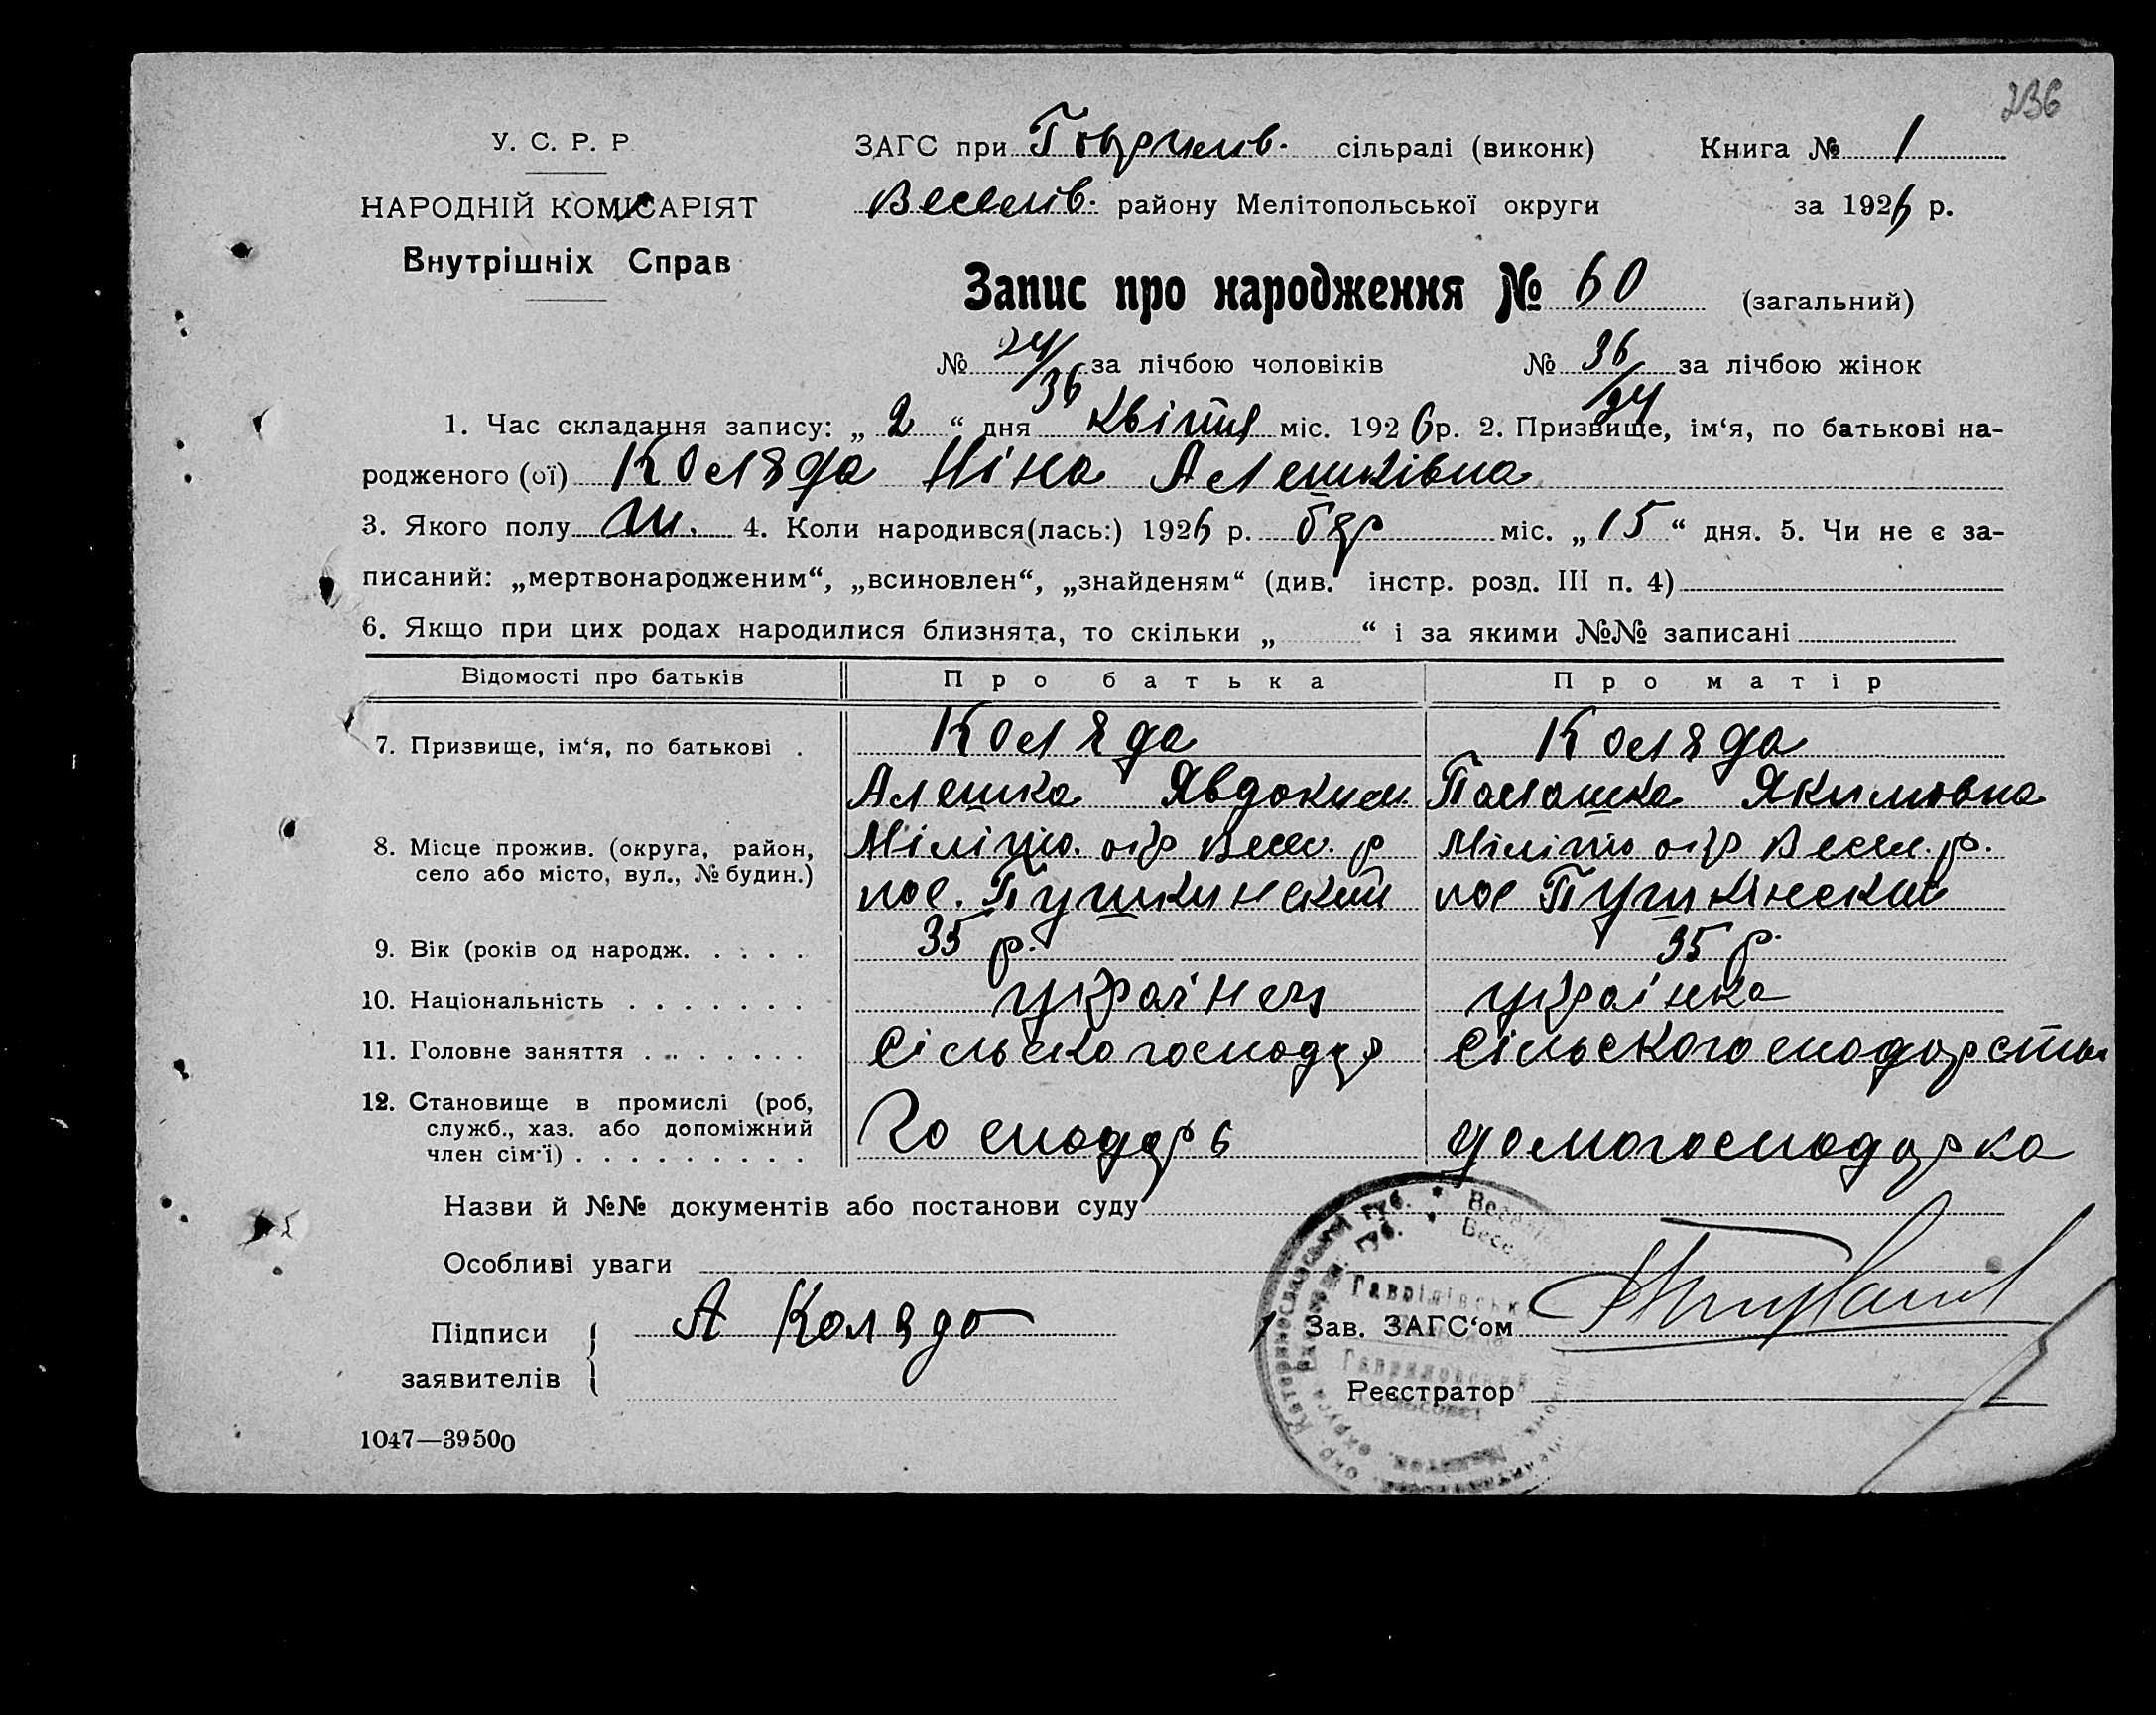 236
У. С. Р. Р
НАРОДНІЙ КОМІСАРІЯТ
Внутрішніх Справ
ЗАГС при Гаврилив. сільраді (виконк) Книга № 1
Веселів. району Мелітопольської округи за 1926 р.
Запис про народження № 60 (загальний)
№ 24/36 за лічбою чоловіків № 36/24 за лічбою жінок
1. Час складання запису: „ 2 “ дня Квітня міс. 1926 р. 2. Призвище, ім‘я, по батькові на-
родженого (ої) Коляда Ніна Алешківна
3. Якого полу ж. 4. Коли народився(лась:) 1926 р. бер міс. „ 15 “ дня. 5. Чи не є за-
писаний: „мертвонародженим“, „всиновлен“, „знайденям“ (див. інстр. розд. III п. 4)
6. Якщо при цих родах народилися близнята, то скільки „ “ і за якими №№ записані
Відомості про батьків Про батька Про матір
7. Призвище, ім‘я, по батькові . Коляда Коляда
Алешка Явдоким. Палашка Якимовна
8. Місце прожив. (округа, район, Міліто. окр Весел. р Міліто окр Весел. р.
село або місто, вул., № будин.) пос. Пушкинский пос Пушкінский
9. Вік (років од народж. . . . . 35 р. 35 р.
10. Національність . . . . . . . українец українка
11. Головне заняття . . . . . . . Сільскогосподар Сільскогосподарств
12. Становище в промислі (роб, Господарь домогосподарка
служб., хаз. або допоміжний
член сім‘ї) . . . . . . . . .
Назви й №№ документів або постанови суду
Особливі уваги
Підписи А Коляда Зав. ЗАГС‘ом
заявителів Реєстратор
Гаврилівськ
Гавриловский
Сельсовет
1047—39500